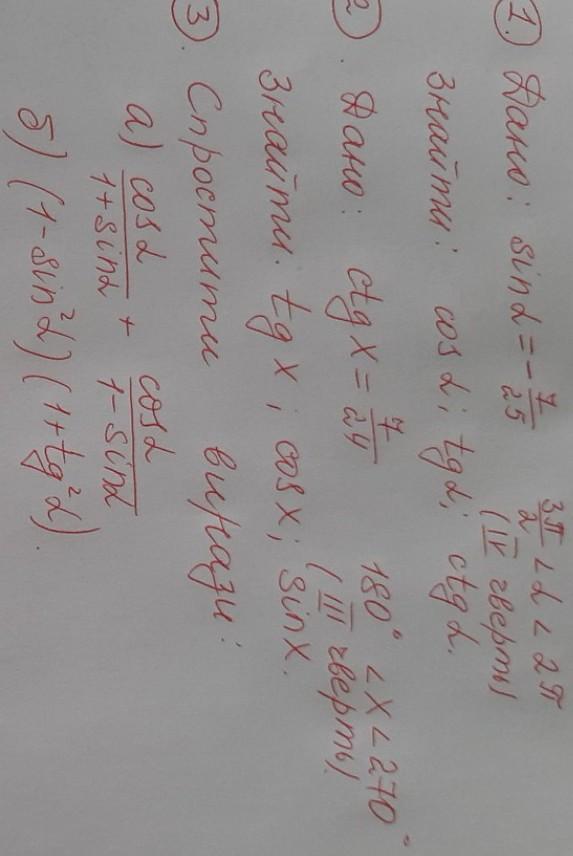 1. Дано: sin α = -7/25 3π/2 < α < 2π
(IV чверть)
Знайти: cos α; tg α; ctg α.
2. Дано: ctg x = 7/24 180° < x < 270°
(III чверть)
Знайти. tg x; cos x; sin x.
3. Спростити вирази:
а) cos α/(1+sin α) + cos α/(1-sin α)
б) (1-sin²α)(1+tg²α).